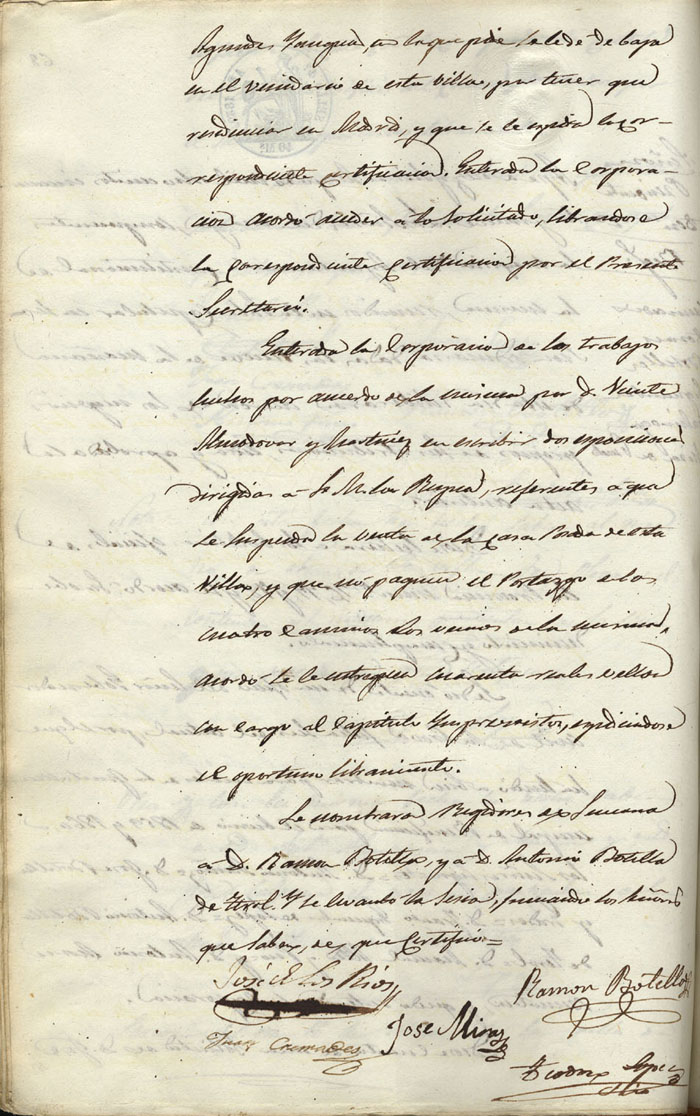 en el vecindario de esta villa, por tener que
residenciar en Madrid, y que se le expida la cor-
respondiente certificacion. Enterada la Corpora-
cion acordó acceder a lo solicitado, librandose
la correspondiente certificacion por el Presente
Secretario.
Enterada la Corporacion de los trabajos
hechos por acuerdo de la misma por D. Vicente
Almodovar y Martinez en escribir dos exposiciones
dirigidas á S. M. la Reyna, referentes a que
se suspenda la venta de la Casa Posada de esta
Villa, y que no paguen el Portazgo de los
cuatro Caminos los vecinos de la misma,
acordó se le entreguen cuarenta reales vellon
con cargo al Capitulo Ymprevistos, expidiendose
el oportuno libramiento.
Se nombraron Regidores de Semana
á D. Ramon Botella, y á D. Antonio Botella
de Yrol. Y se levantó la Sesion, firmando los Señores
que saben, de que Certifico=
José de Los Rios
Ramon Botella
Jose Mira
Juan Cremades
Teodoro Lopez